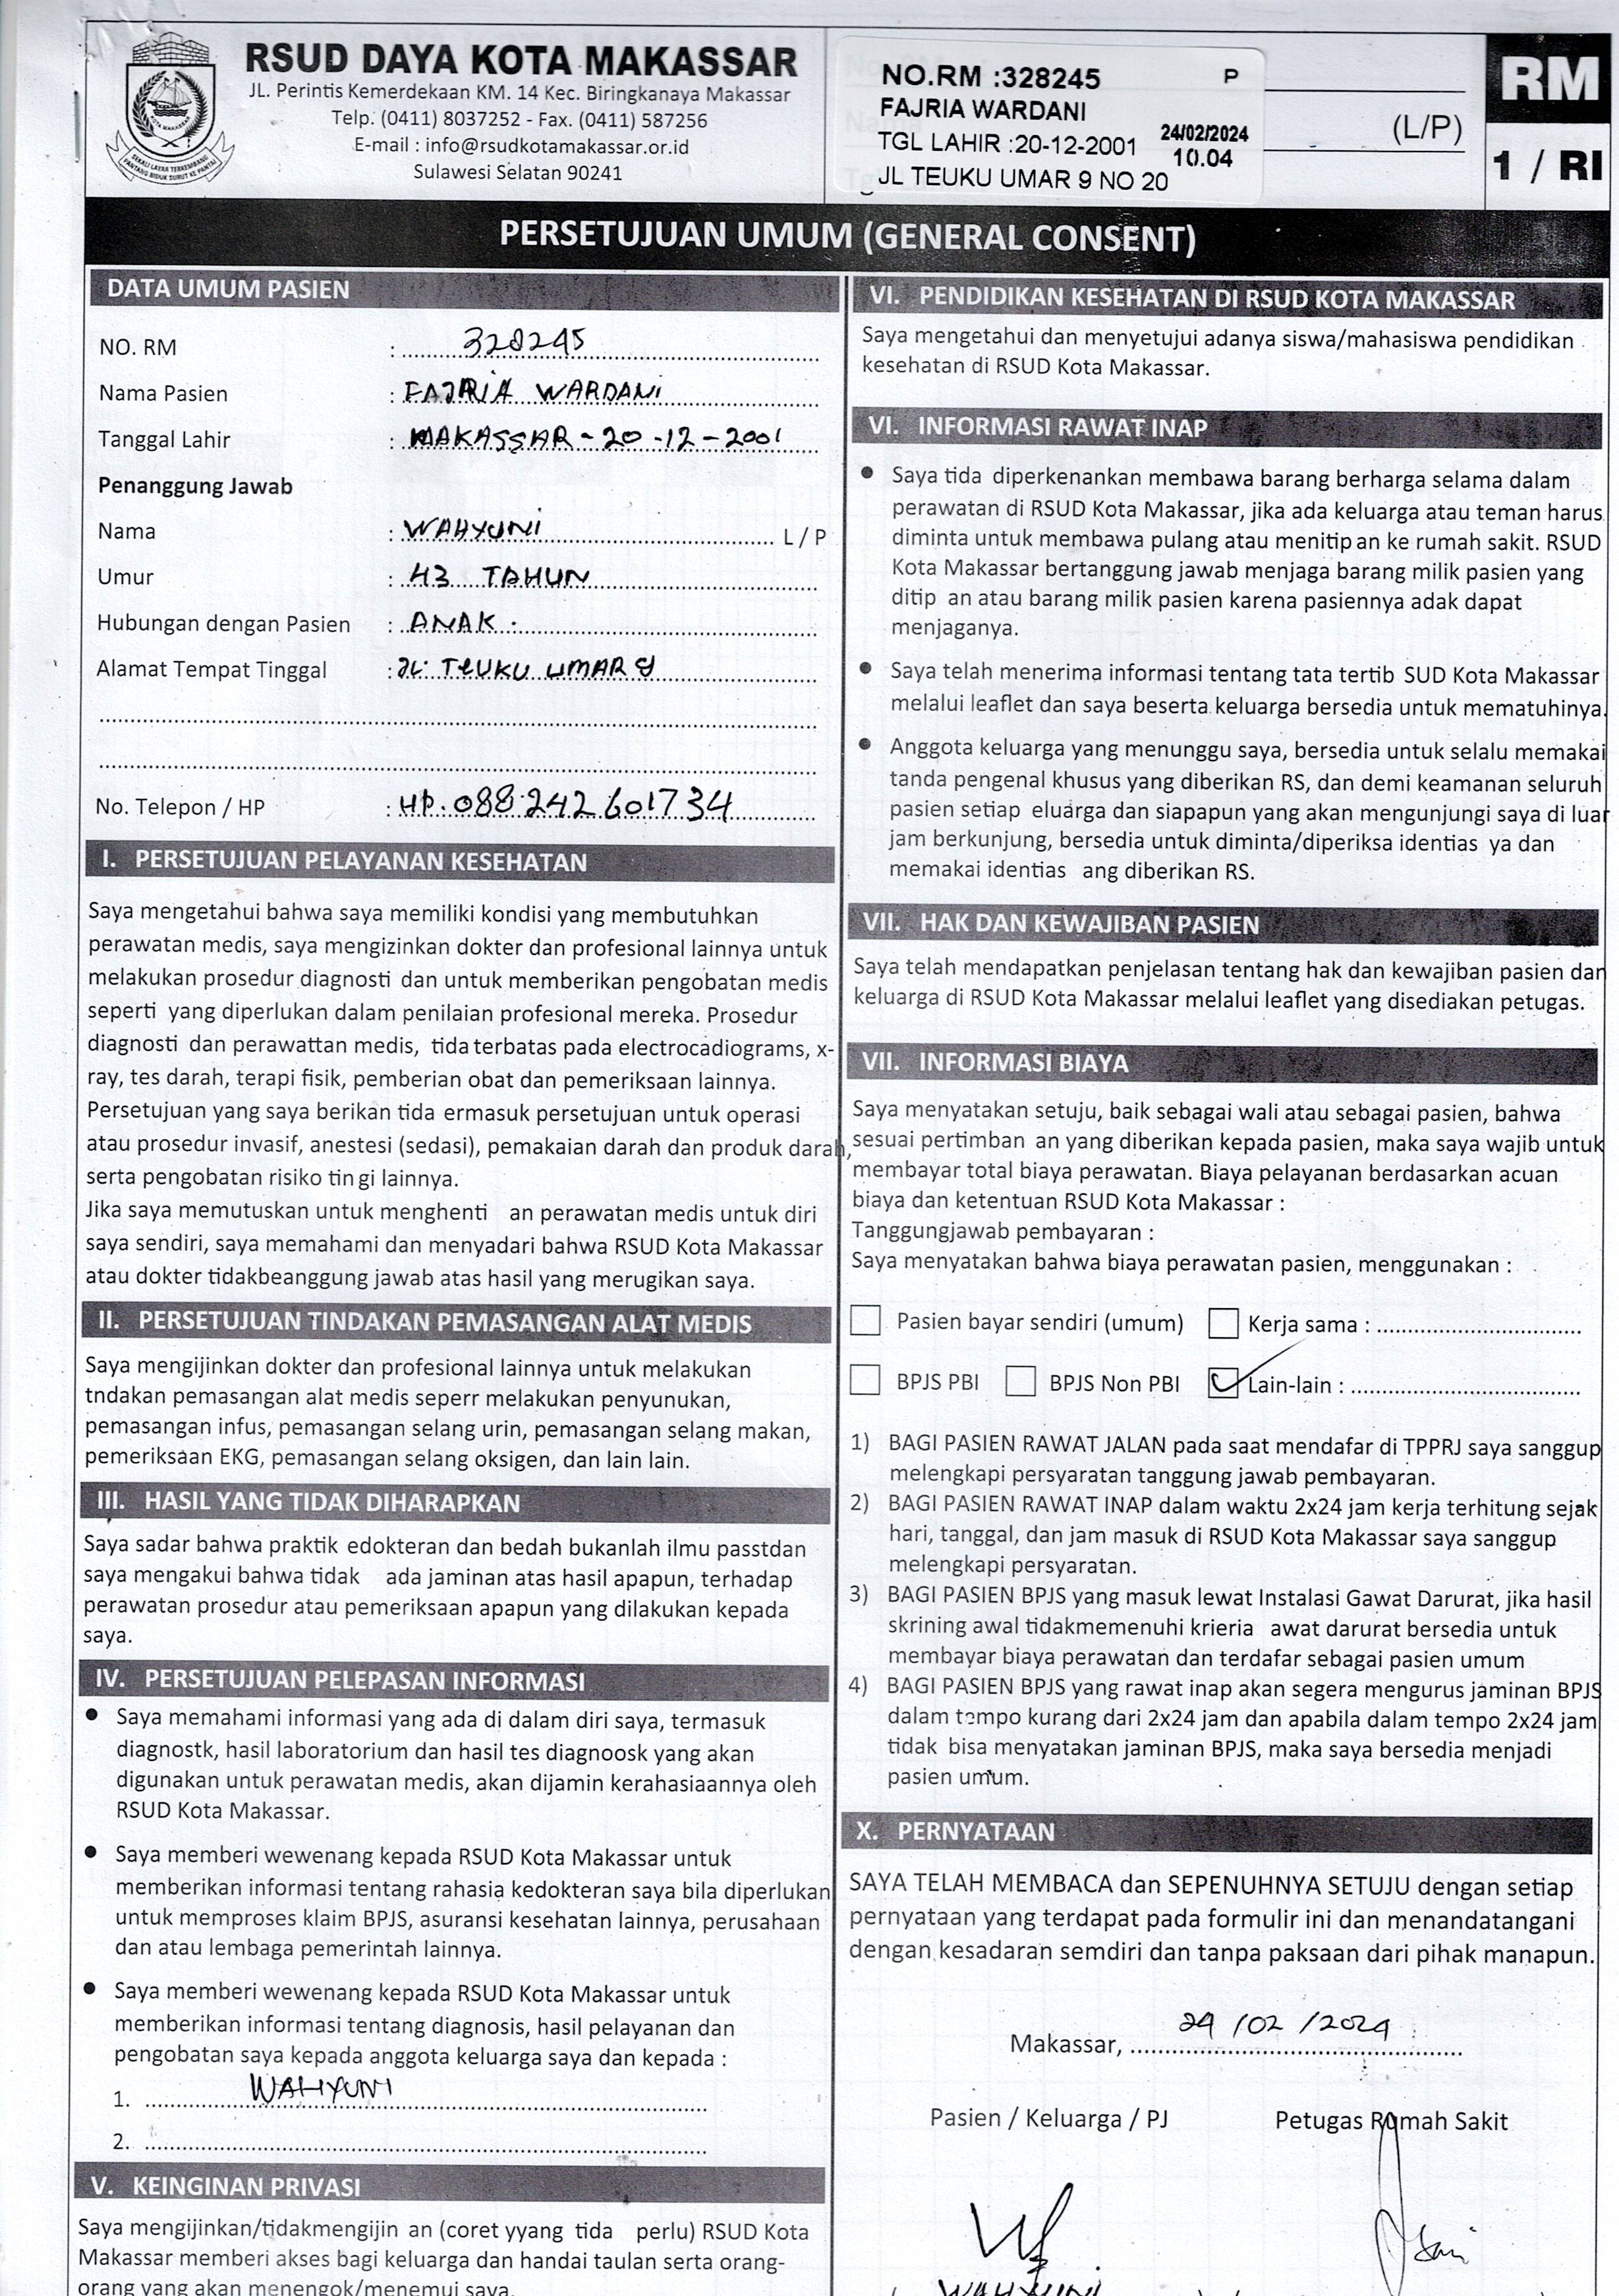 RSUD DAYA KOTA MAKASSAR
JL. Perintis Kemerdekaan KM. 14 Kec. Biringkanaya Makassar
Telp. (0411) 8037252 - Fax. (0411) 587256
E-mail : info@rsudkotamakassar.or.id
Sulawesi Selatan 90241
KOTA MAKASSAR
SEKALI LAYAR TERKEMBANG
PANTANG BIDUK SURUT KE PANTAI
NO.RM :328245 P
FAJRIA WARDANI
TGL LAHIR :20-12-2001 24/02/2024
10.04
JL TEUKU UMAR 9 NO 20
(L/P)
RM
1 / RI
PERSETUJUAN UMUM (GENERAL CONSENT)
DATA UMUM PASIEN
NO. RM : 328245
Nama Pasien : FAJRIA WARDANI
Tanggal Lahir : MAKASSAR - 20 - 12 - 2001
Penanggung Jawab
Nama : WAHYUNI L / P
Umur : 43 TAHUN
Hubungan dengan Pasien : ANAK .
Alamat Tempat Tinggal : JL. TEUKU UMAR 9
No. Telepon / HP : HP. 088 242 601734
I. PERSETUJUAN PELAYANAN KESEHATAN
Saya mengetahui bahwa saya memiliki kondisi yang membutuhkan
perawatan medis, saya mengizinkan dokter dan profesional lainnya untuk
melakukan prosedur diagnosti dan untuk memberikan pengobatan medis
seperti yang diperlukan dalam penilaian profesional mereka. Prosedur
diagnosti dan perawattan medis, tida terbatas pada electrocadiograms, x-
ray, tes darah, terapi fisik, pemberian obat dan pemeriksaan lainnya.
Persetujuan yang saya berikan tida ermasuk persetujuan untuk operasi
atau prosedur invasif, anestesi (sedasi), pemakaian darah dan produk darah,
serta pengobatan risiko tin gi lainnya.
Jika saya memutuskan untuk menghenti an perawatan medis untuk diri
saya sendiri, saya memahami dan menyadari bahwa RSUD Kota Makassar
atau dokter tidakbeanggung jawab atas hasil yang merugikan saya.
II. PERSETUJUAN TINDAKAN PEMASANGAN ALAT MEDIS
Saya mengijinkan dokter dan profesional lainnya untuk melakukan
tndakan pemasangan alat medis seperr melakukan penyunukan,
pemasangan infus, pemasangan selang urin, pemasangan selang makan,
pemeriksaan EKG, pemasangan selang oksigen, dan lain lain.
III. HASIL YANG TIDAK DIHARAPKAN
Saya sadar bahwa praktik edokteran dan bedah bukanlah ilmu passtdan
saya mengakui bahwa tidak ada jaminan atas hasil apapun, terhadap
perawatan prosedur atau pemeriksaan apapun yang dilakukan kepada
saya.
IV. PERSETUJUAN PELEPASAN INFORMASI
● Saya memahami informasi yang ada di dalam diri saya, termasuk
diagnostk, hasil laboratorium dan hasil tes diagnoosk yang akan
digunakan untuk perawatan medis, akan dijamin kerahasiaannya oleh
RSUD Kota Makassar.
● Saya memberi wewenang kepada RSUD Kota Makassar untuk
memberikan informasi tentang rahasia kedokteran saya bila diperlukan
untuk memproses klaim BPJS, asuransi kesehatan lainnya, perusahaan
dan atau lembaga pemerintah lainnya.
● Saya memberi wewenang kepada RSUD Kota Makassar untuk
memberikan informasi tentang diagnosis, hasil pelayanan dan
pengobatan saya kepada anggota keluarga saya dan kepada :
1. WAHYUNI
2.
V. KEINGINAN PRIVASI
Saya mengijinkan/tidakmengijin an (coret yyang tida perlu) RSUD Kota
Makassar memberi akses bagi keluarga dan handai taulan serta orang-
orang yang akan menengok/menemui saya.
VI. PENDIDIKAN KESEHATAN DI RSUD KOTA MAKASSAR
Saya mengetahui dan menyetujui adanya siswa/mahasiswa pendidikan
kesehatan di RSUD Kota Makassar.
VI. INFORMASI RAWAT INAP
● Saya tida diperkenankan membawa barang berharga selama dalam
perawatan di RSUD Kota Makassar, jika ada keluarga atau teman harus
diminta untuk membawa pulang atau menitip an ke rumah sakit. RSUD
Kota Makassar bertanggung jawab menjaga barang milik pasien yang
ditip an atau barang milik pasien karena pasiennya adak dapat
menjaganya.
● Saya telah menerima informasi tentang tata tertib SUD Kota Makassar
melalui leaflet dan saya beserta keluarga bersedia untuk mematuhinya.
● Anggota keluarga yang menunggu saya, bersedia untuk selalu memakai
tanda pengenal khusus yang diberikan RS, dan demi keamanan seluruh
pasien setiap eluarga dan siapapun yang akan mengunjungi saya di luar
jam berkunjung, bersedia untuk diminta/diperiksa identias ya dan
memakai identias ang diberikan RS.
VII. HAK DAN KEWAJIBAN PASIEN
Saya telah mendapatkan penjelasan tentang hak dan kewajiban pasien dan
keluarga di RSUD Kota Makassar melalui leaflet yang disediakan petugas.
VII. INFORMASI BIAYA
Saya menyatakan setuju, baik sebagai wali atau sebagai pasien, bahwa
sesuai pertimban an yang diberikan kepada pasien, maka saya wajib untuk
membayar total biaya perawatan. Biaya pelayanan berdasarkan acuan
biaya dan ketentuan RSUD Kota Makassar :
Tanggungjawab pembayaran :
Saya menyatakan bahwa biaya perawatan pasien, menggunakan :
Pasien bayar sendiri (umum) Kerja sama :
BPJS PBI BPJS Non PBI Lain-lain :
1) BAGI PASIEN RAWAT JALAN pada saat mendafar di TPPRJ saya sanggup
melengkapi persyaratan tanggung jawab pembayaran.
2) BAGI PASIEN RAWAT INAP dalam waktu 2x24 jam kerja terhitung sejak
hari, tanggal, dan jam masuk di RSUD Kota Makassar saya sanggup
melengkapi persyaratan.
3) BAGI PASIEN BPJS yang masuk lewat Instalasi Gawat Darurat, jika hasil
skrining awal tidakmemenuhi krieria awat darurat bersedia untuk
membayar biaya perawatan dan terdafar sebagai pasien umum
4) BAGI PASIEN BPJS yang rawat inap akan segera mengurus jaminan BPJS
dalam tempo kurang dari 2x24 jam dan apabila dalam tempo 2x24 jam
tidak bisa menyatakan jaminan BPJS, maka saya bersedia menjadi
pasien umum.
X. PERNYATAAN
SAYA TELAH MEMBACA dan SEPENUHNYA SETUJU dengan setiap
pernyataan yang terdapat pada formulir ini dan menandatangani
dengan kesadaran semdiri dan tanpa paksaan dari pihak manapun.
Makassar, 24 / 02 / 2024
Pasien / Keluarga / PJ Petugas Rumah Sakit
WAHYUNI